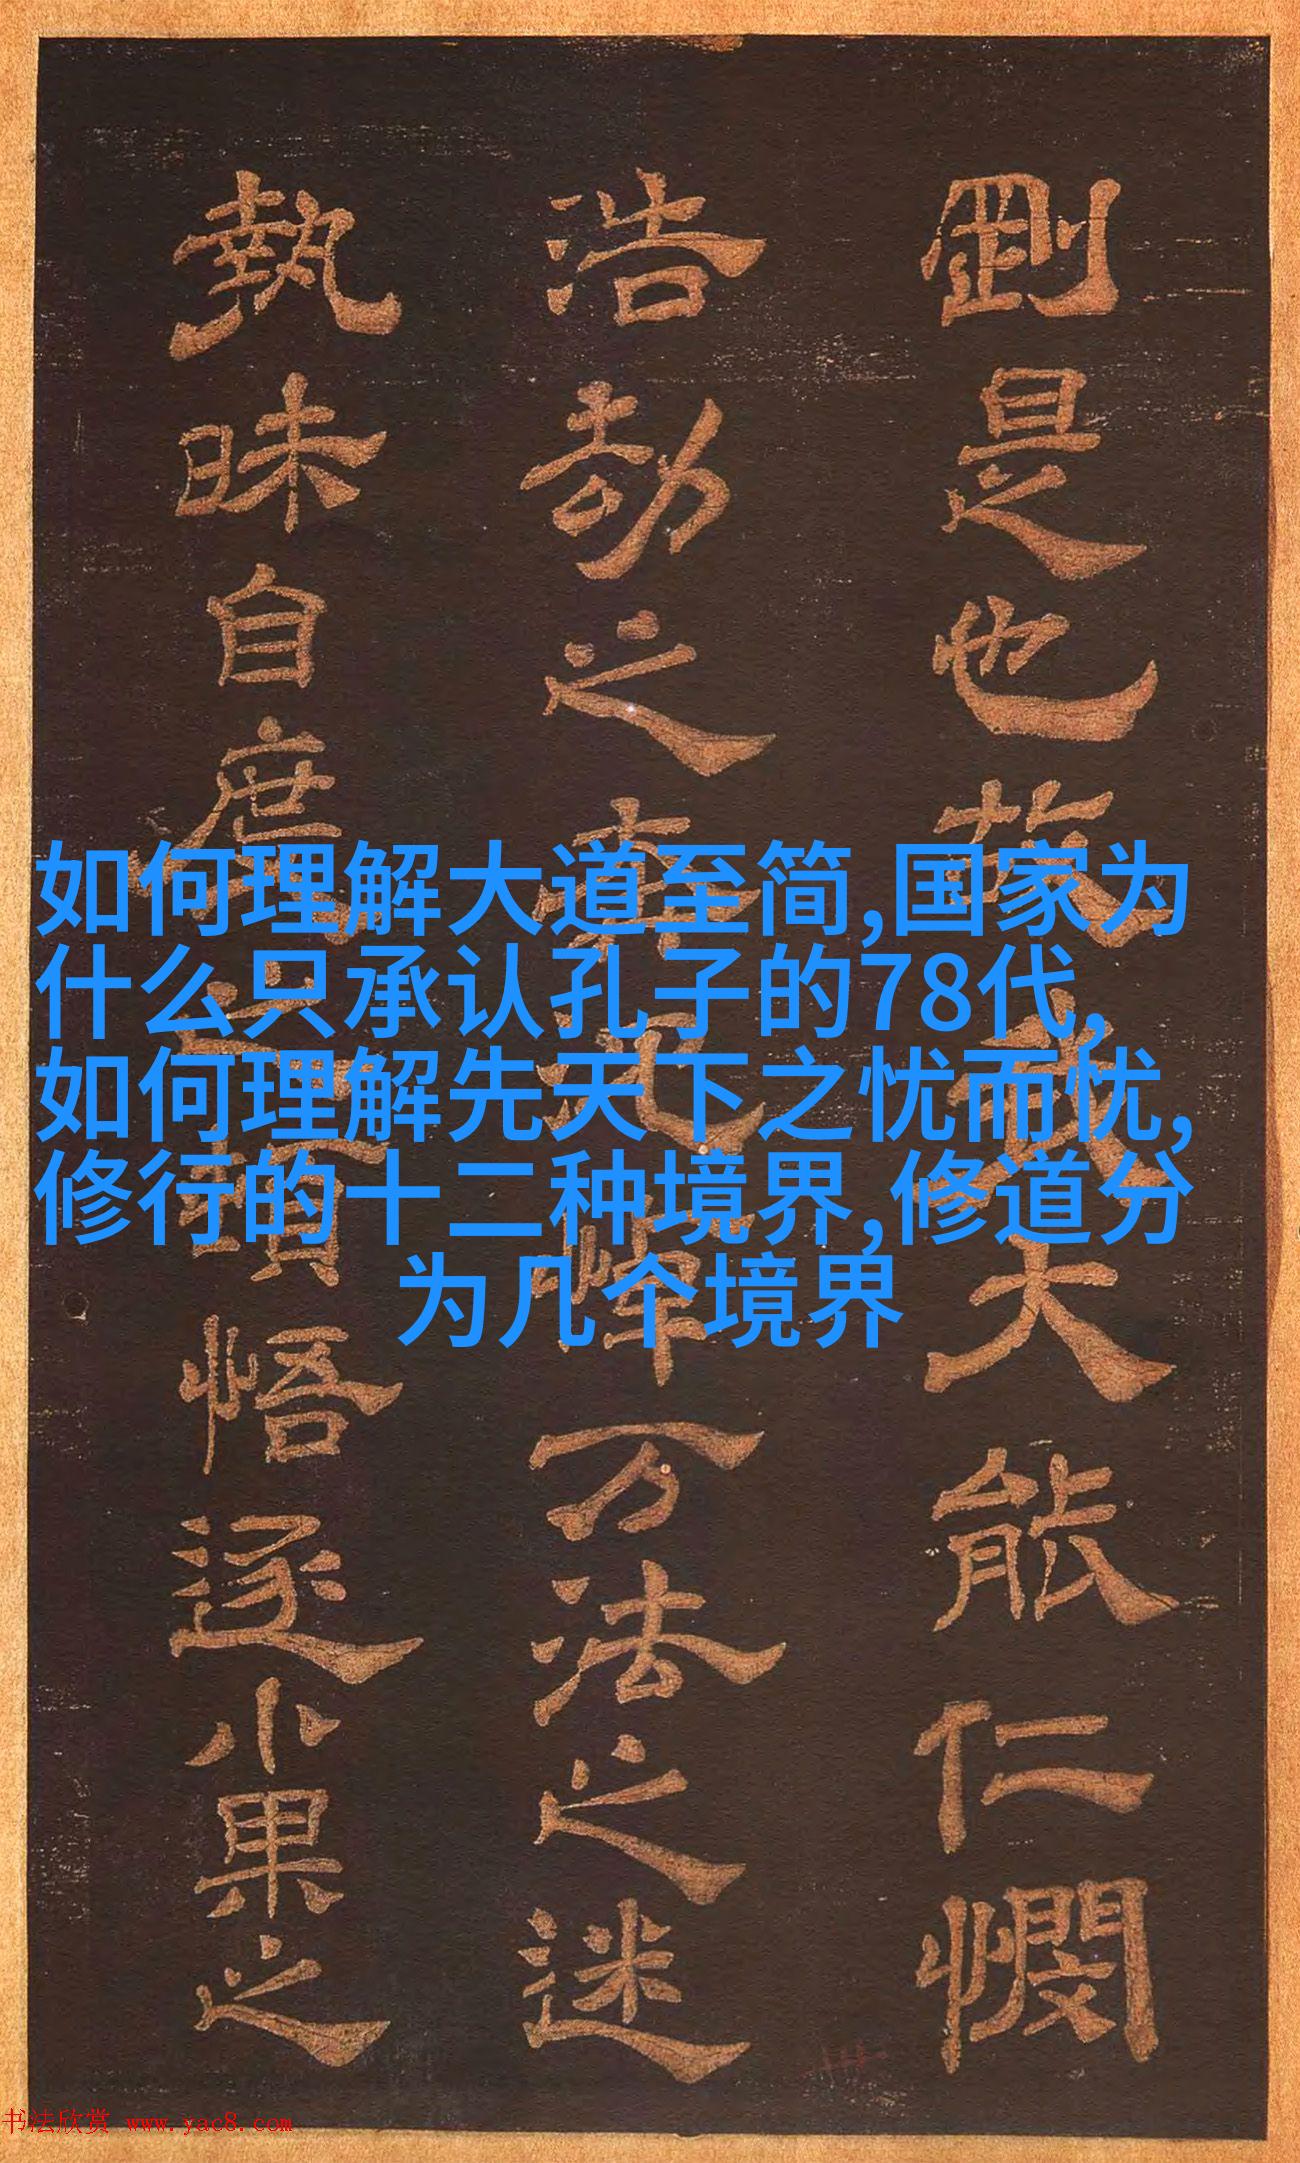 剛是也故大能仁憫
浩劫之万法之迷
執昧自悟逐小果之
如何理解大道至简,国家为
什么只承认孔子的78代,
如何理解先天下之忧而忧,
修行的十二种境界,修道分
为几个境界
书法欣赏 www.yac8.com